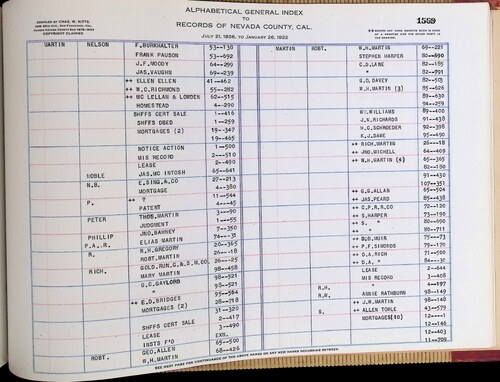 COMPILED BY CHAS. W. KITTS,
COPYRIGHT CLAIMED
ALPHABETICAL GENERAL INDEX
TO
RECORDS OF NEVADA COUNTY, CAL.
JULY 21, 1856, TO JANUARY 26, 1922
1559
MARTIN NELSON F. BURKHALTER 53--138 MARTIN ROBT. W.H. MARTIN 69--221
FRANK PAUSON 53--692 STEPHEN HARPER 80--690
J.F. MOODY 64--299 C.D. LANE 82--185
JAS. VAUGHN 69--239 " 82--891
++ ELLEN ELLEN 41--462 G.D. DAVEY 82--503
++ W.C. RICHMOND 55--282 W.H. MARTIN (3) 85--626
++ MC LELLAN & LOWDEN 62--515 89--630
HOMESTEAD 4--290 94--259
SHFFS CERT SALE 1--416 WM. WILLIAMS 89--400
SHFFS DEED 1--259 J.N. RICHARDS 91--438
MORTGAGES (2) 19--347 N.C. SCHROEDER 92--398
19--465 K.J. DAME 95--490
NOTICE ACTION 1--500 ++ RICH. MARTIN 26--18
MIS RECORD 2--510 ++ JNO. MICHELL 64--409
LEASE 2--490 ++ W.H. MARTIN (4) 65--305
NOBLE JAS. MC INTOSH 65--641 82--180
N.B. E. SING. & CO 27--213 91--430
MORTGAGE 4--380 107--351
P. ++ ? 11--544 ++ G.S. ALLAN 65--504
PATENT 4--45 ++ JAS. PEARD 85--438
PETER THOS. MARTIN 3--90 ++ C.P.R.R. CO 72--120
JUDGMENT 1--55 ++ S. HARPER 73--190
PHILLIP JNO. BARNEY 7--350 ++ S. " 80--690
P.A.R. ELIAS MARTIN 74--31 ++ " 80--711
R. W.H. GREGORY 20--365 ++ BOB. MUIR 75--73
ROBT. MARTIN 26--18 ++ P.F. SIMONDS 79--170
RICH. GOLD. RUN. G. & S. M. CO. 26--25 ++ D.A. RICH 71--500
MARY MARTIN 98--458 ++ D.A. "
G.C. GAYLORD 98--521 LEASE 2--644
" MIS RECORD 3--408
++ E.D. BRIDGES 28--718 R.H. " 4--197
MORTGAGES (2) 31--320 R.W. ANNIE RATHBURN 98--149
2--417 ++ J.W. MARTIN 98--148
SHFFS CERT SALE 3--490 S. ++ ALLEN TOWLE 43--579
LEASE EXM. MORTGAGES (10) 12---1
INSTS F'D 65--500 12--146
ROBT. GEO. ALLEN 68--426 12--403
W.H. MARTIN 11--709
SEE NEXT PAGE FOR CONTINUANCE OF THE ABOVE NAMES OR ANY NEW NAMES OCCURRING BETWEEN